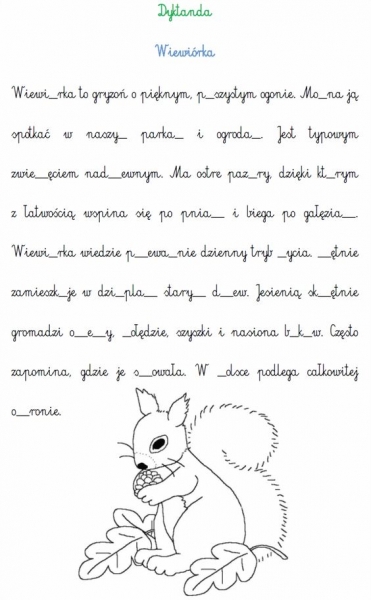 Dyktanda
Wiewiórka
Wiewi_rka to gryzoń o pięknym, p__szystym ogonie. Mo_na ją
spotkać w naszy_ parka_ i ogroda_. Jest typowym
zwie__ęciem nad__ewnym. Ma ostre paz_ry, dzięki kt_rym
z łatwością wspina się po pnia__ i biega po gałęzia__.
Wiewi_rka wiedzie p__ewa_nie dzienny tryb _ycia. __ętnie
zamieszk_je w dzi_pla__ stary__ d__ew. Jesienią sk__ętnie
gromadzi o__e_y, _ołędzie, szyszki i nasiona b_k_w. Często
zapomina, gdzie je s__owała. W _olsce podlega całkowitej
o__ronie.